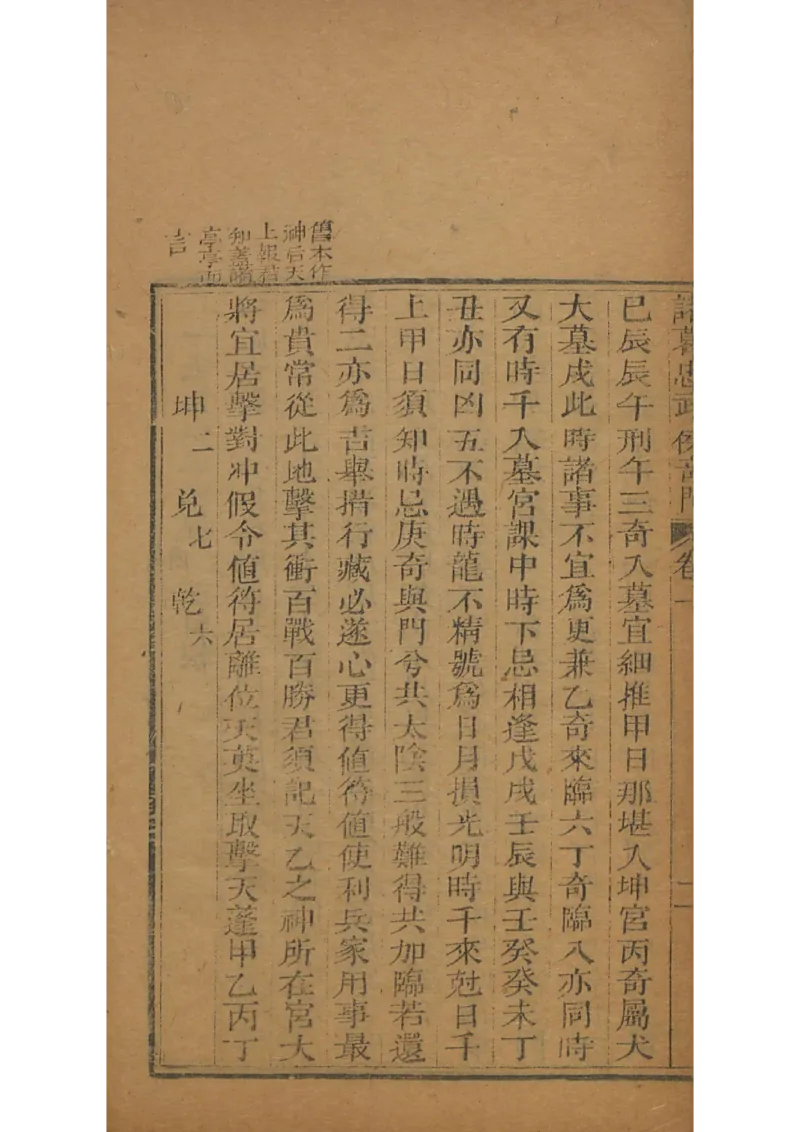 諸葛忠武侯奇門 卷一 二
巳辰辰午刑午三奇入墓宜細推甲日那堪入坤宮丙奇屬火
大墓戌此時諸事不宜爲更兼乙奇來臨六丁奇臨八亦同時
又有時干入墓宮課中時下忌相逢戊戌壬辰與壬癸癸未丁
丑亦同凶五不遇時龍不精號爲日月損光明時干來尅日干
上甲日須知時忌庚奇與門兮共太陰三般難得共加臨若還
得二亦爲吉舉措行藏必遂心更得値符値使利兵家用事最
爲貴常從此地擊其衝百戰百勝君須記天乙之神所在宮大
將宜居擊對冲假令値符居離位天英坐取擊天蓬甲乙丙丁
坤二 兌七 乾六
舊本作
神后天
上報君
知善諸
亭亭而
言